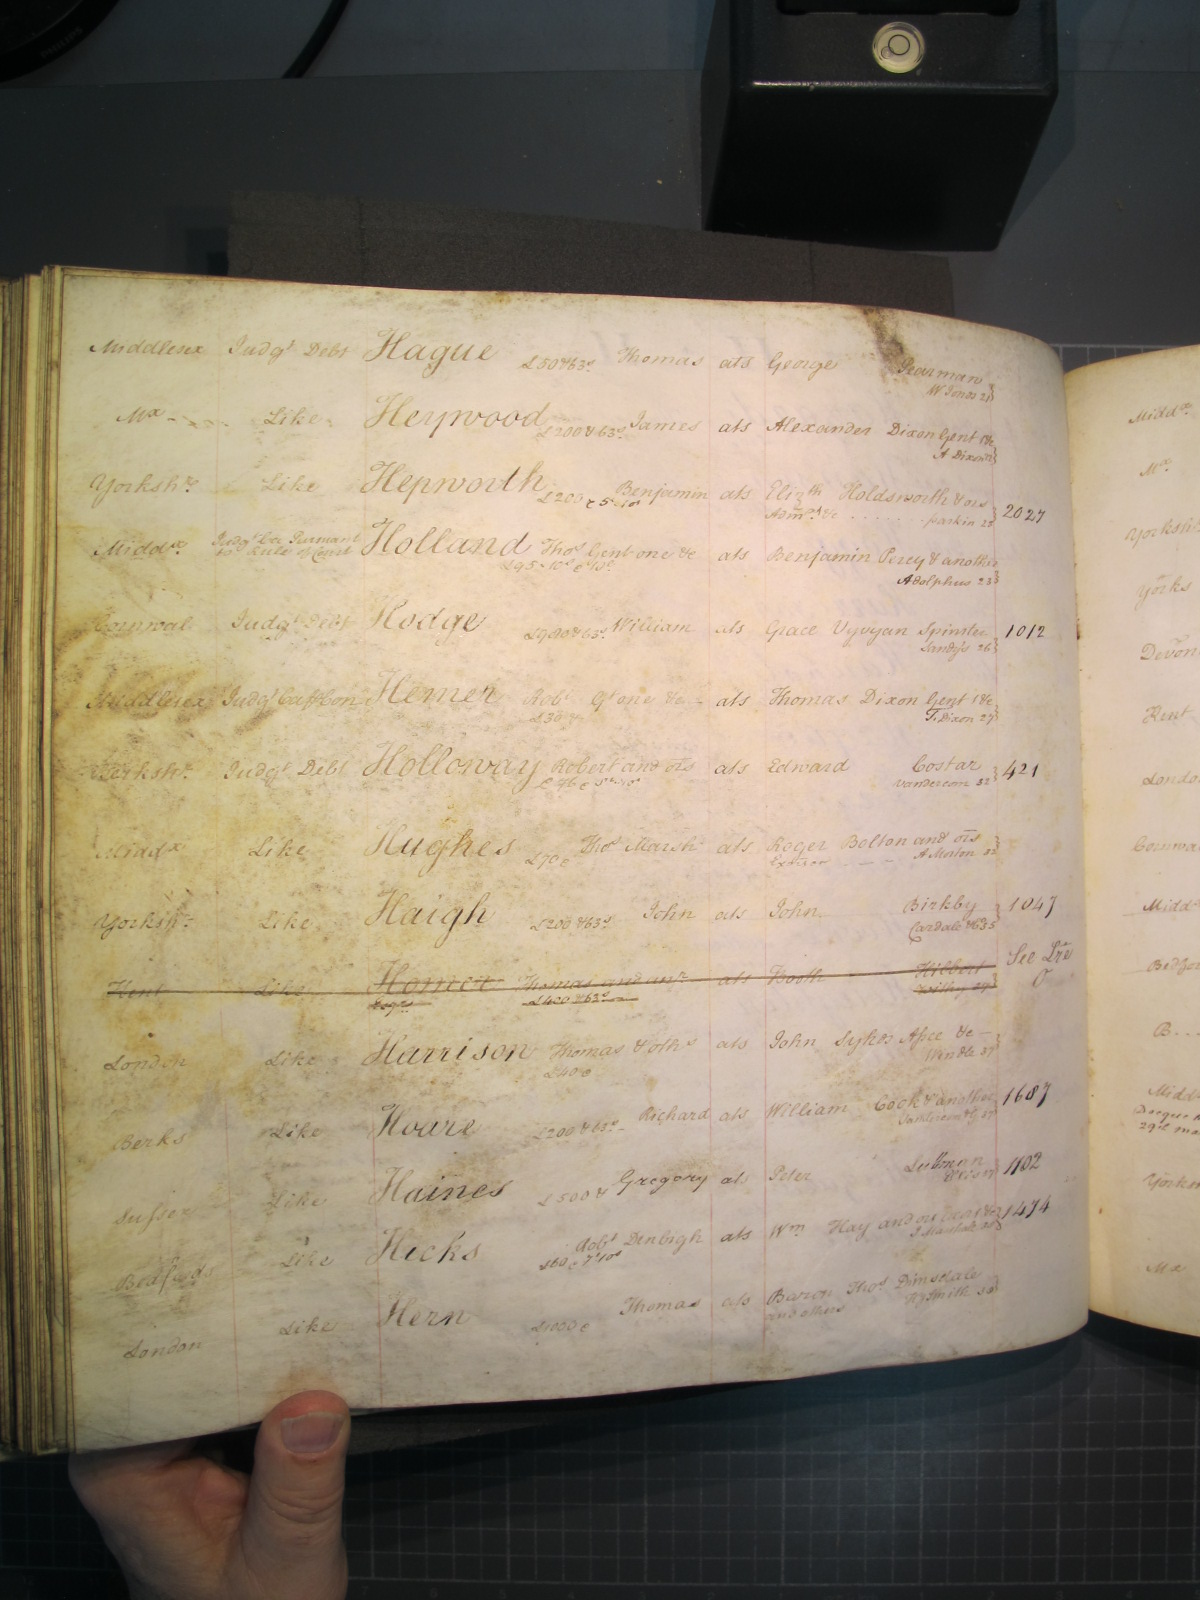 Middlesex Judgt Debt Hague £50 & 63s Thomas ats George Pearman
W Jones 21
Mx Like Heywood £200 & 63s James ats Alexander Dixon Gent 1 &c
A Dixon
Yorkshr Like Hepworth £200 Benjamin ats Elizth Holdsworth & ors 2027
Admrs &c parkin 23
Middx Judgt Ca Rule of Court Holland Thos Gent one &c ats Benjamin Percy & another
£95-10s Adolphus 23
Cornwal Judgt Debt Hodge £990 & 63s William ats Grace Vyvyan Spinster 1012
Sandys 26
Middlesex Judgt Hemer Robt Gt one &c ats Thomas Dixon Gent 1 &c
£30 T. Dixon 27
Judgt Debt Holloway Robert and ors ats Edward Costar 421
Vandercom 32
Middx Like Hughes £70 Thos Marsh ats Roger Bolton and ors
A Morton 32
Yorkshr Like Haigh £200 & 63s John ats John Birkby 1047
Cardale &c 35
Kent Like Thomas and anr ats Booth Hilbert See Lre O
£400 & 63s
London Like Harrison Thomas & oths ats John Sykes Asse &c
£40 Wendle 37
Berks Like Hoare £200 & 63s Richard ats William Cock & another 1687
Sussex Like Haines £500 & Gregory at Peter 1102
Bedfords Like Hicks £60 Robt Denbigh ats Wm Hay and 1474
London Like Hern £1000 Thomas ats Baron Thos Dimsdale
and others Smith
Middx
Mx
Yorkshr
Yorks
Devon
Kent
London
Cornwa
Middx
Bedfor
B
Middx
Yorksh
Mx